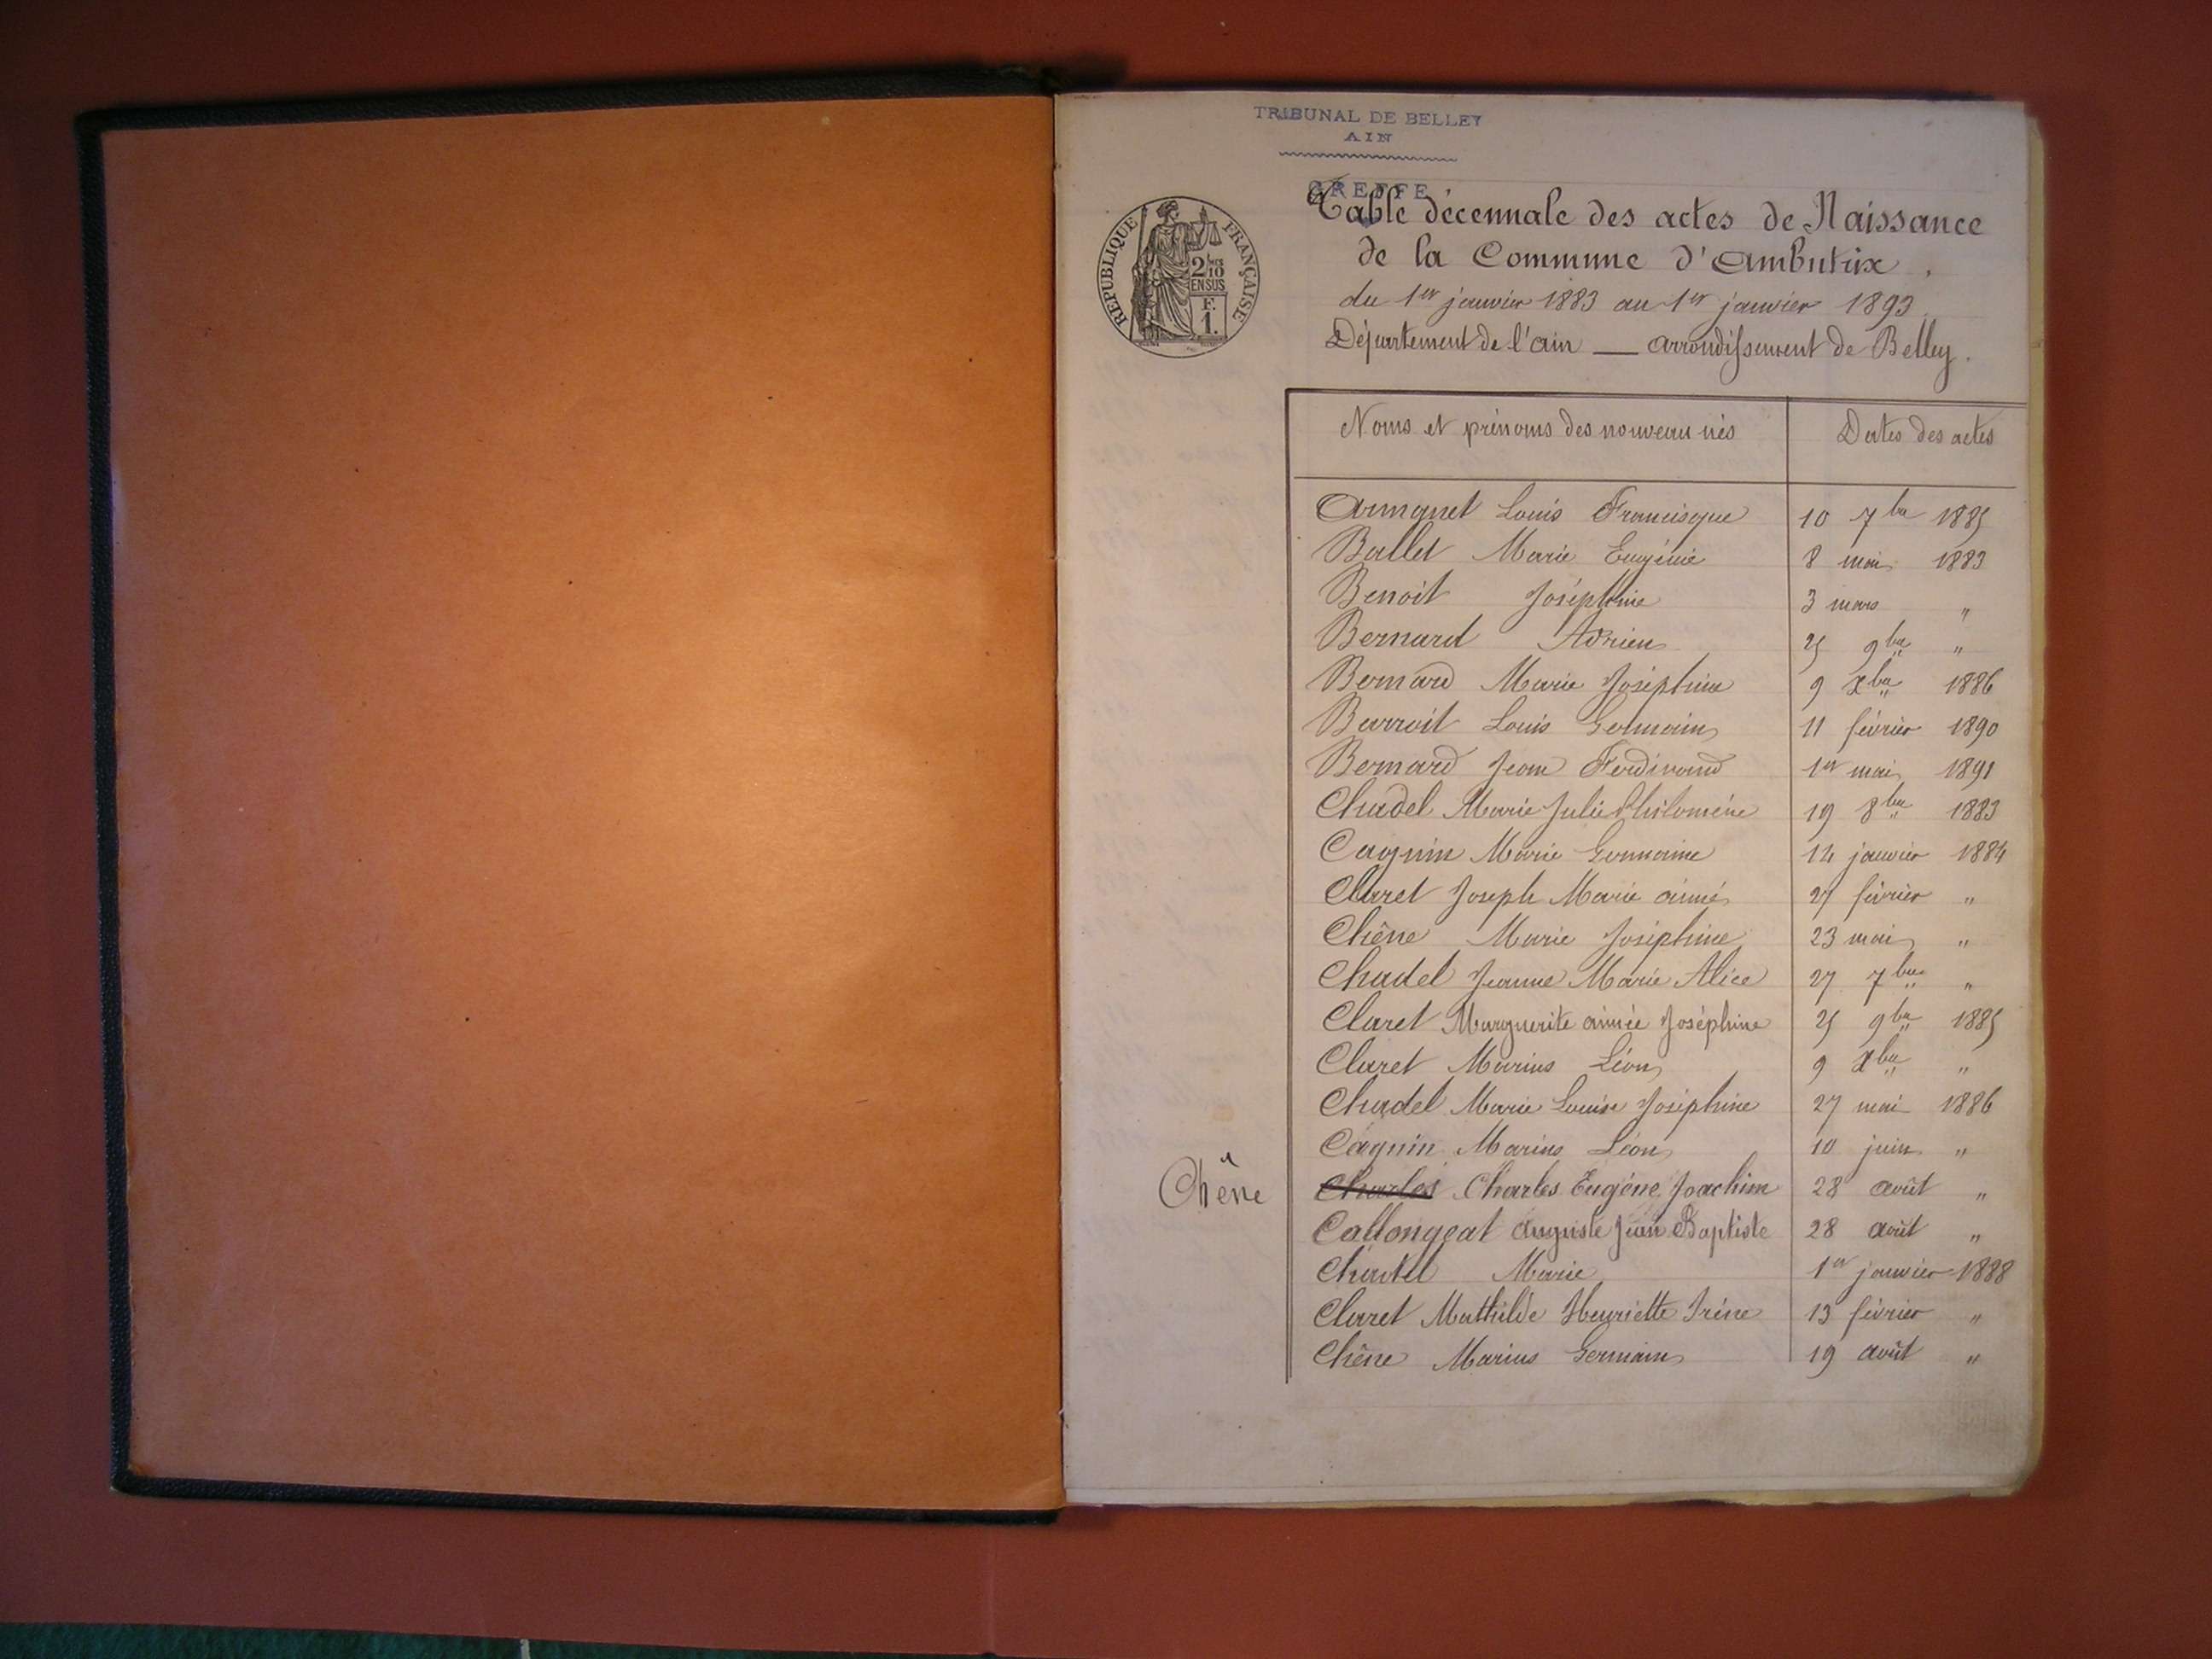 TRIBUNAL DE BELLEY
AIN
GREFFE
RÉPUBLIQUE FRANÇAISE
2/10 EN SUS
F. 1.
Table décennale des actes de Naissance
de la Commune d'Ambutrix.
du 1er janvier 1883 au 1er janvier 1893
Département de l'ain — arrondissement de Belley.
Noms et prénoms des nouveau-nés Dates des actes
Armanet Louis Francisque 10 7bre 1885
Ballet Marie Eugénie 8 mai 1883
Benoit Joséphine 3 mars "
Bernard Adrien 25 9bre "
Bernard Marie Joséphine 9 Xbre 1886
Barroit Louis Germain 11 février 1890
Bernard Jean Ferdinand 1er mai 1891
Chadel Marie Julie Philomène 19 8bre 1883
Cagnin Marie Germaine 14 janvier 1884
Claret Joseph Marie aimé 27 février "
Chêne Marie Joséphine 23 mai "
Chadel Jeanne Marie Alice 27 7bre "
Claret Marguerite aimée Joséphine 25 9bre 1885
Claret Marius Léon 9 Xbre "
Chadel Marie Louise Joséphine 27 mai 1886
Cagnin Marius Léon 10 juin "
Chêne Charles Charles Eugène Joachim 28 août "
Callongeat Auguste Jean Baptiste 28 août "
Chadel Marie 1er janvier 1888
Claret Mathilde Henriette Irène 13 février "
Chêne Marius Germain 19 août "